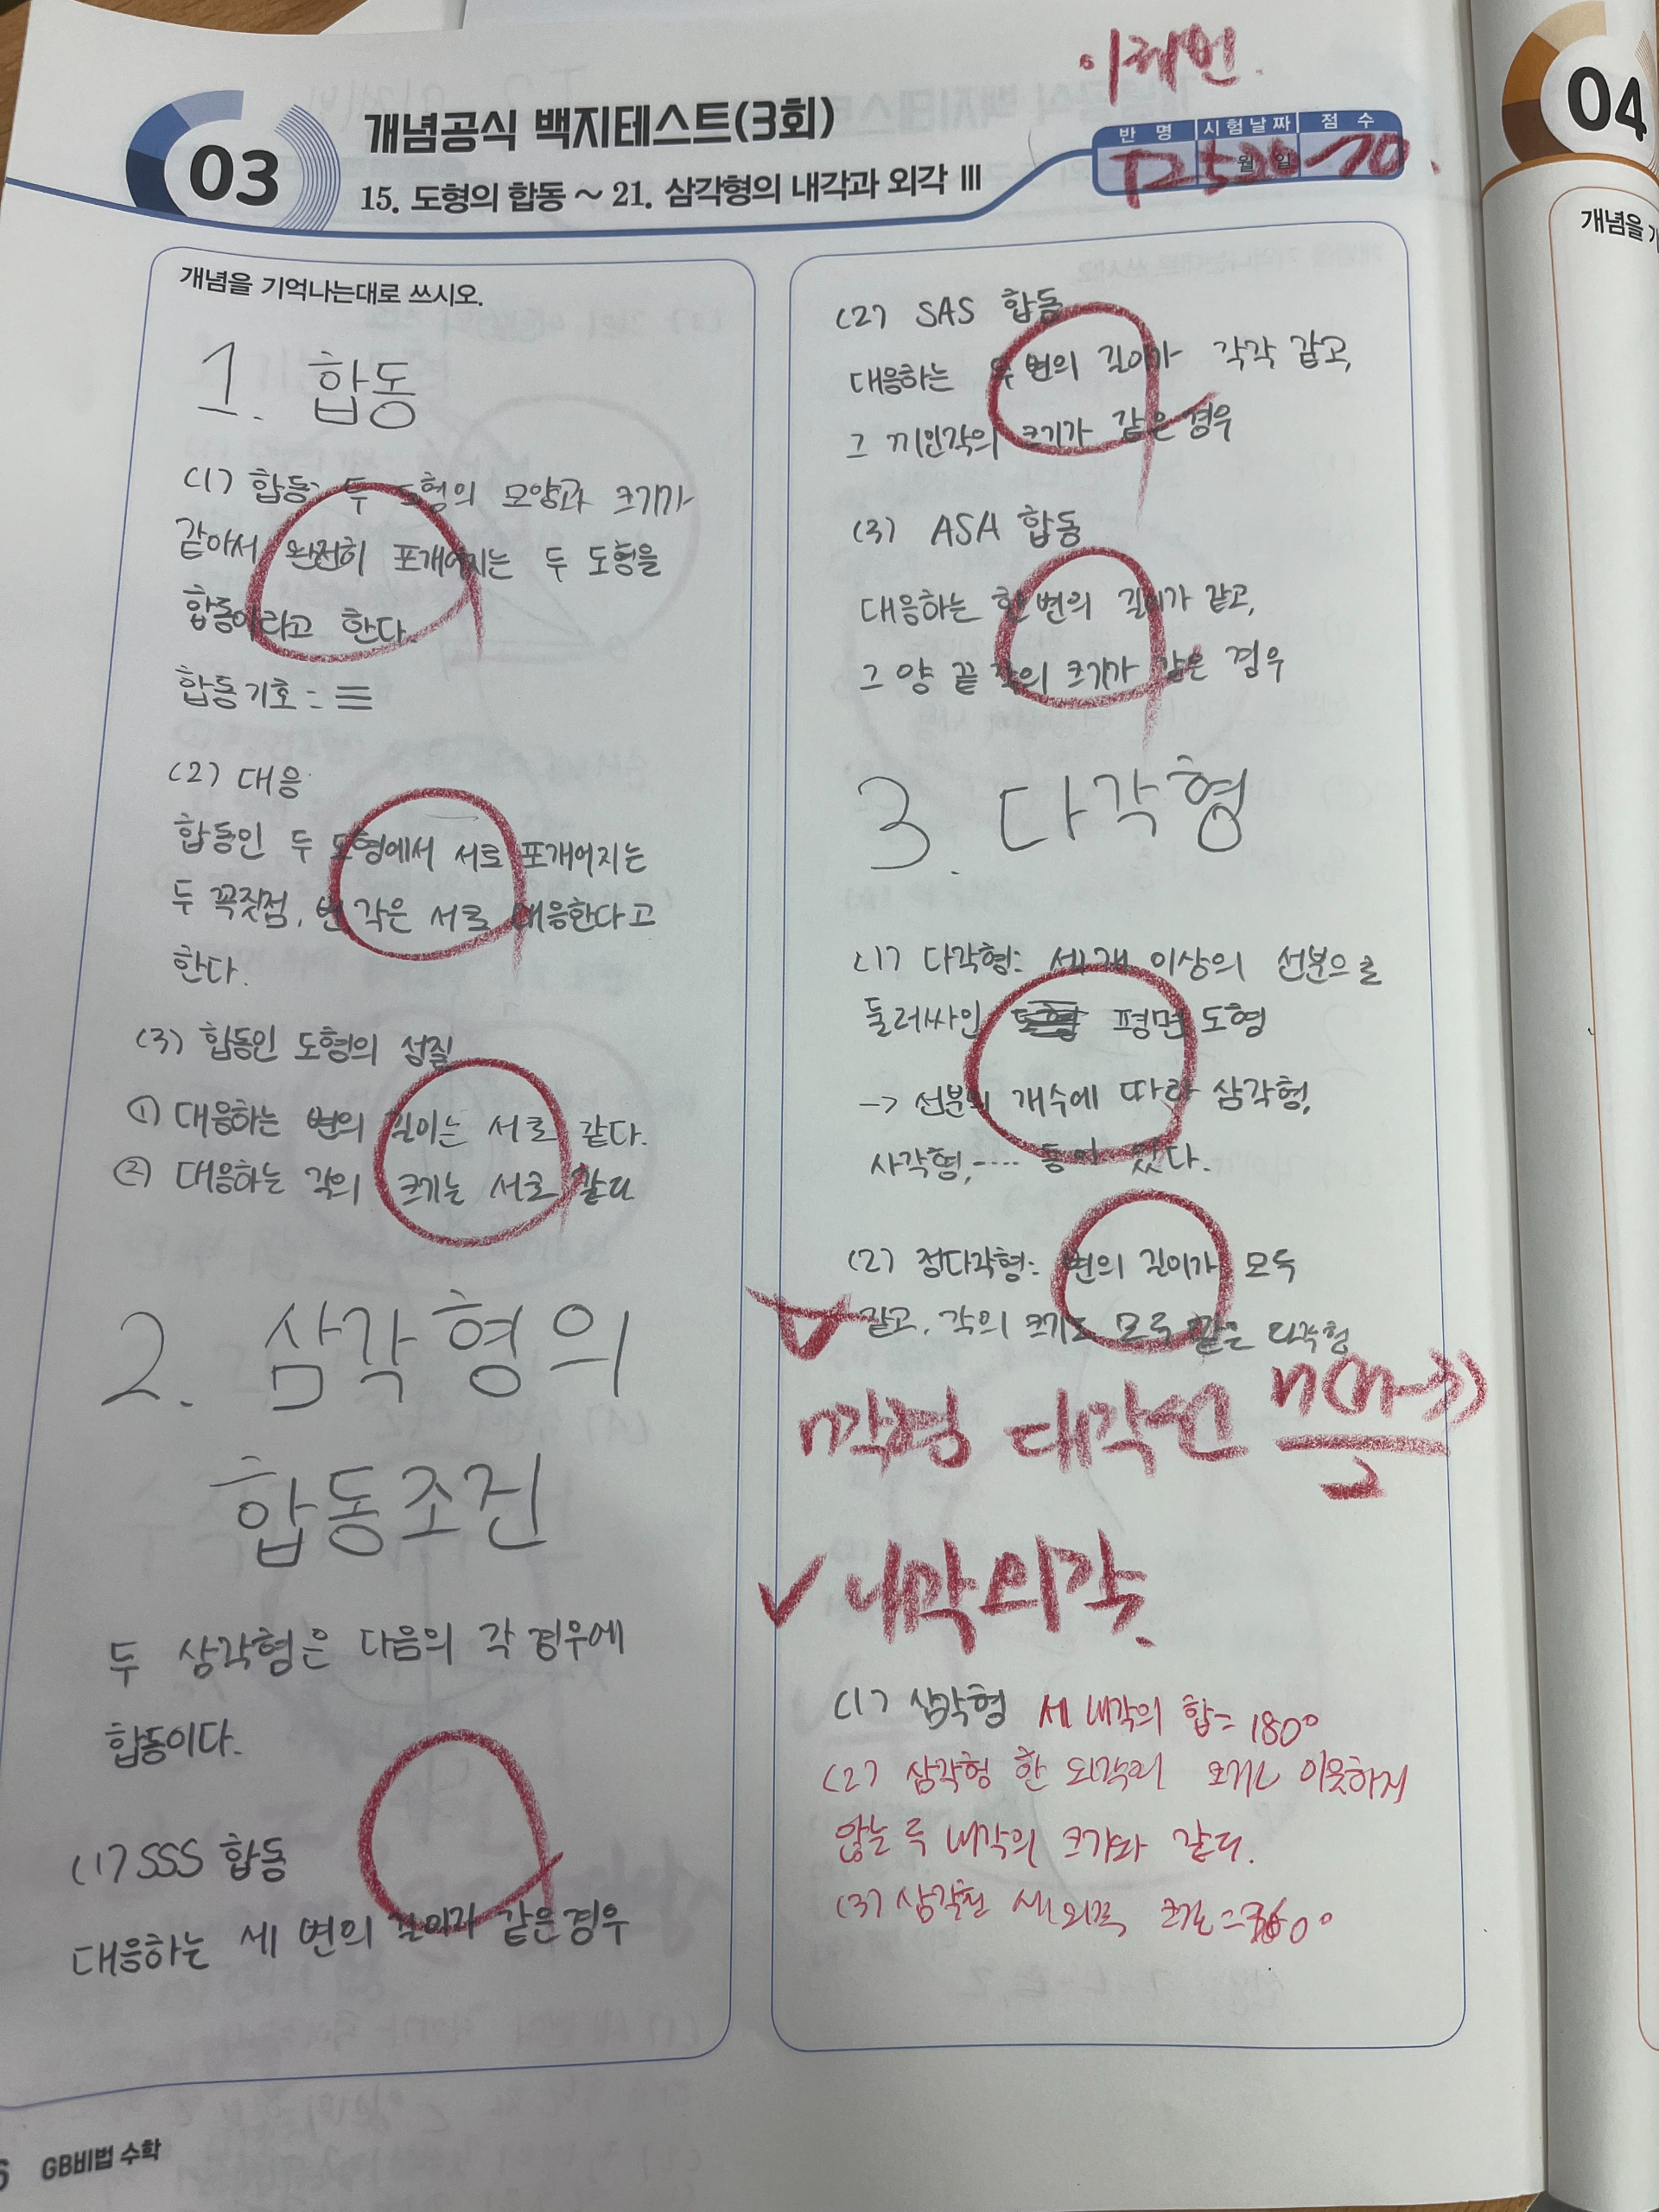 이혜빈.
03
개념공식 백지테스트(3회)
15. 도형의 합동 ~ 21. 삼각형의 내각과 외각 Ⅲ
반 명 시험날짜 점 수
월 일
70.
04
개념을
개념을 기억나는대로 쓰시오.
1. 합동
(1) 합동: 두 도형의 모양과 크기가
같아서 완전히 포개어지는 두 도형을
합동이라고 한다.
합동기호 : ≡
(2) 대응
합동인 두 도형에서 서로 포개어지는
두 꼭짓점, 변 각은 서로 대응한다고
한다.
(3) 합동인 도형의 성질
① 대응하는 변의 길이는 서로 같다.
② 대응하는 각의 크기는 서로 같다
2. 삼각형의
합동조건
두 삼각형은 다음의 각 경우에
합동이다.
(1) SSS 합동
대응하는 세 변의 길이가 같은 경우
(2) SAS 합동
대응하는 두 변의 길이가 각각 같고,
그 끼인각의 크기가 같은 경우
(3) ASA 합동
대응하는 한 변의 길이가 같고,
그 양 끝 각의 크기가 같은 경우
3. 다각형
(1) 다각형: 세 개 이상의 선분으로
둘러싸인 평면 도형
-> 선분의 개수에 따라 삼각형,
사각형, ···· 등이 있다.
(2) 정다각형: 변의 길이가 모두
같고, 각의 크기도 모두 같은 다각형
n각형 대각선 n(n-3)
2
내각 외각.
(1) 삼각형 세 내각의 합= 180°
(2) 삼각형 한 외각의 크기는 이웃하지
않는 두 내각의 크기와 같다.
(3) 삼각형 세 외각 =360°
GB비법 수학